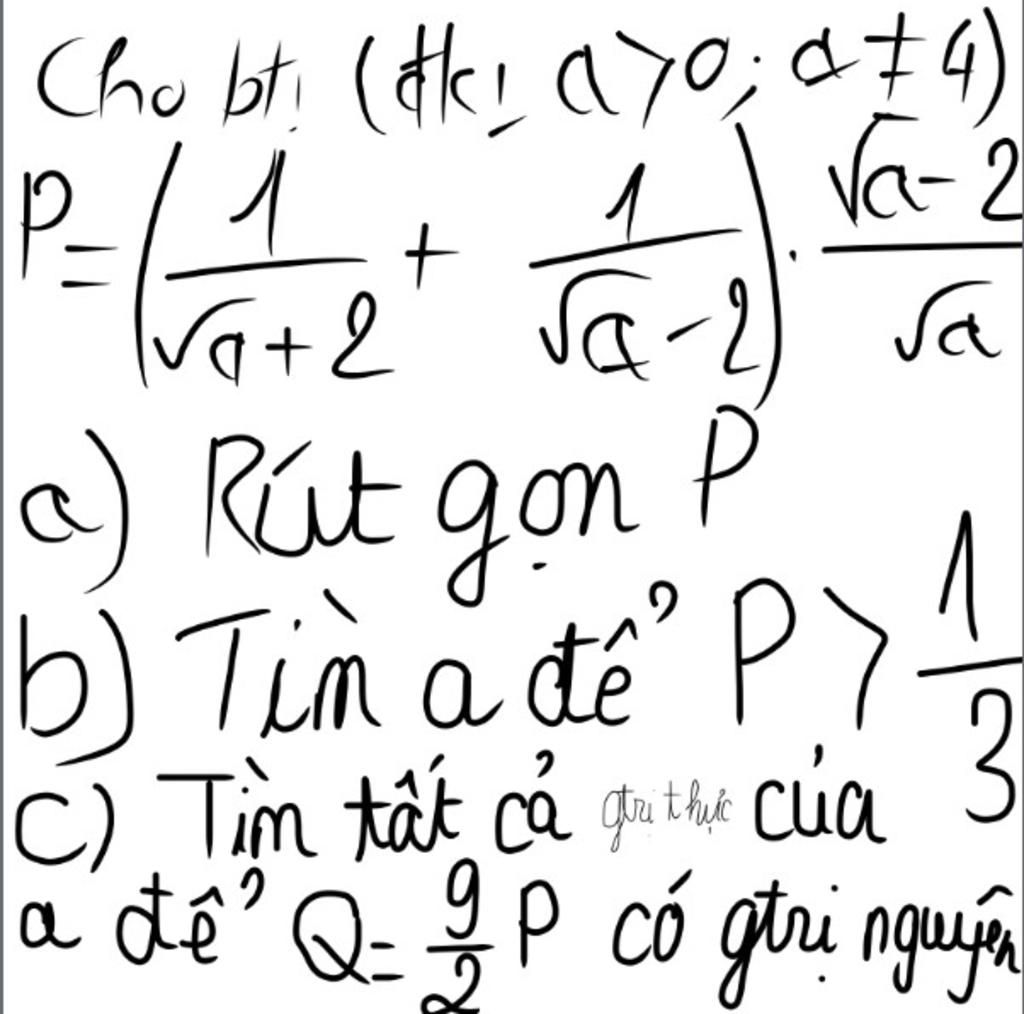 Cho bt: (đk: a>0; a ≠ 4)
P = (1/(√a+2) + 1/(√a-2)) . (√a-2)/√a
a) Rút gọn P
b) Tìm a để P > 1/3
c) Tìm tất cả gtri thực của
a để Q = 9/2 P có gtrị nguyên